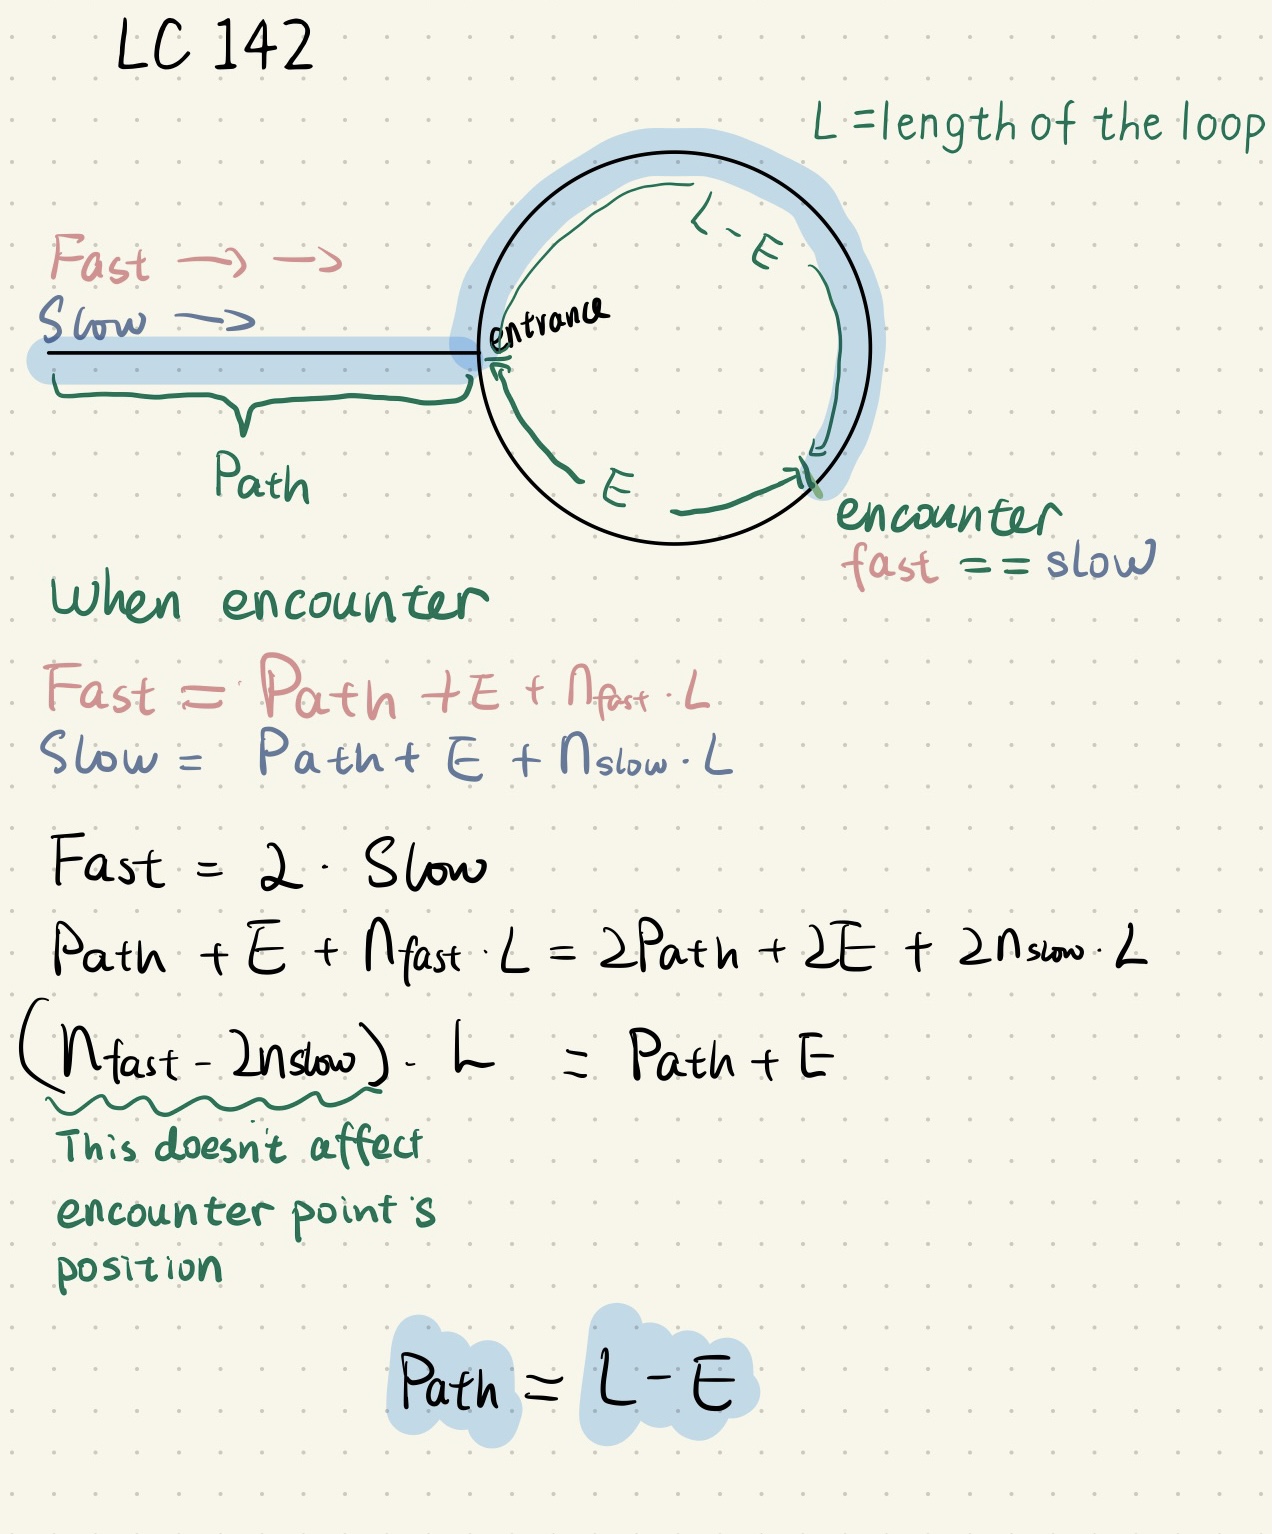 LC 142
L = length of the loop
L - E
Fast → →
Slow →
entrance
Path
E
encounter
fast == slow
When encounter
Fast = Path + E + nfast · L
Slow = Path + E + nslow · L
Fast = 2 · Slow
Path + E + nfast · L = 2Path + 2E + 2nslow · L
(nfast - 2nslow) · L = Path + E
This doesn't affect
encounter point's
position
Path = L - E